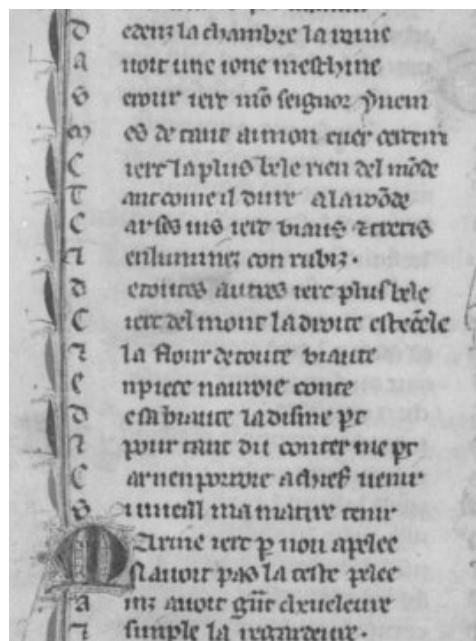 D edenz la chambre la roine
A voit une ione meschine
S erour iere mõ seignor yuein
M es de tant ai mon cuer certein
C iert la plus bele rien del mõde
T ant come il dure a la rõde
C ar ses uis iert biaus ⁊ tretis
⁊ enluminez con rubiz
D etoutes autres iert plus bele
C iert del mont la droite estecele
⁊ la flour de toute biaute
E npiece nauroie conte
D e sa biaute la disme pt
⁊ pour tant du conter me pt
C ar nen porroie a chief uenir
S i uueill ma matire tenir
M arine iert p non apelee
N auoit pas la teste pelee
A inz auoit gñt cheueleure
⁊ simple la regardeure.